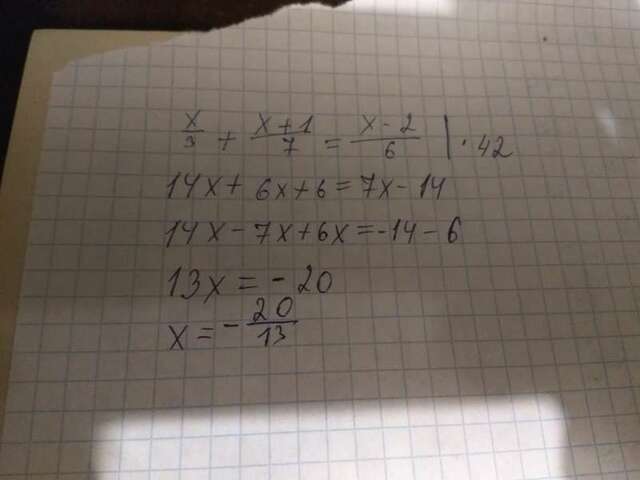 x/3 + x+1/7 = x-2/6 | · 42
14x + 6x + 6 = 7x - 14
14x - 7x + 6x = -14 - 6
13x = - 20
x = - 20/13